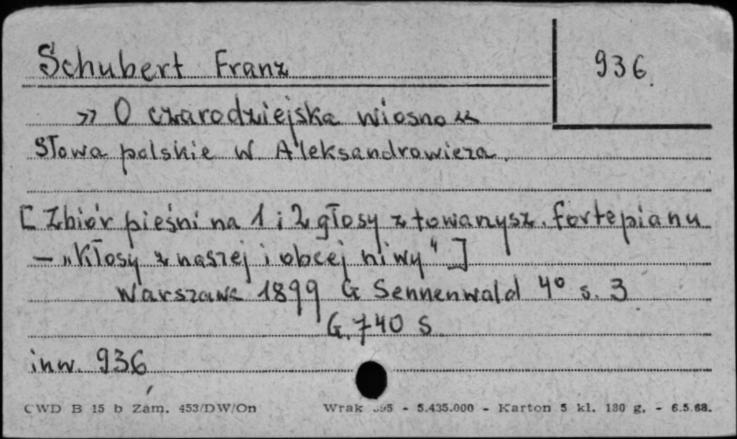 Schubert Franz
936.
» O czarodziejska wiosno «
Słowa polskie W Aleksandrowicza.
[ Zbiór pieśni na 1 i 2 głosy z towarzysz. fortepianu
– „Kłosy z naszej i obcej niwy" ]
Warszawa 1899 G Sennenwald 4° s. 3
G. 740 S
inw. 936
CWD B 15 b Zam. 453/DW/On Wrak 595 - 5.435.000 - Karton 5 kl. 180 g. - 6.5.68.